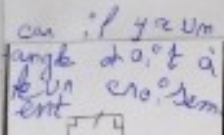 car il y a un
angle droit à
un croisem
ent